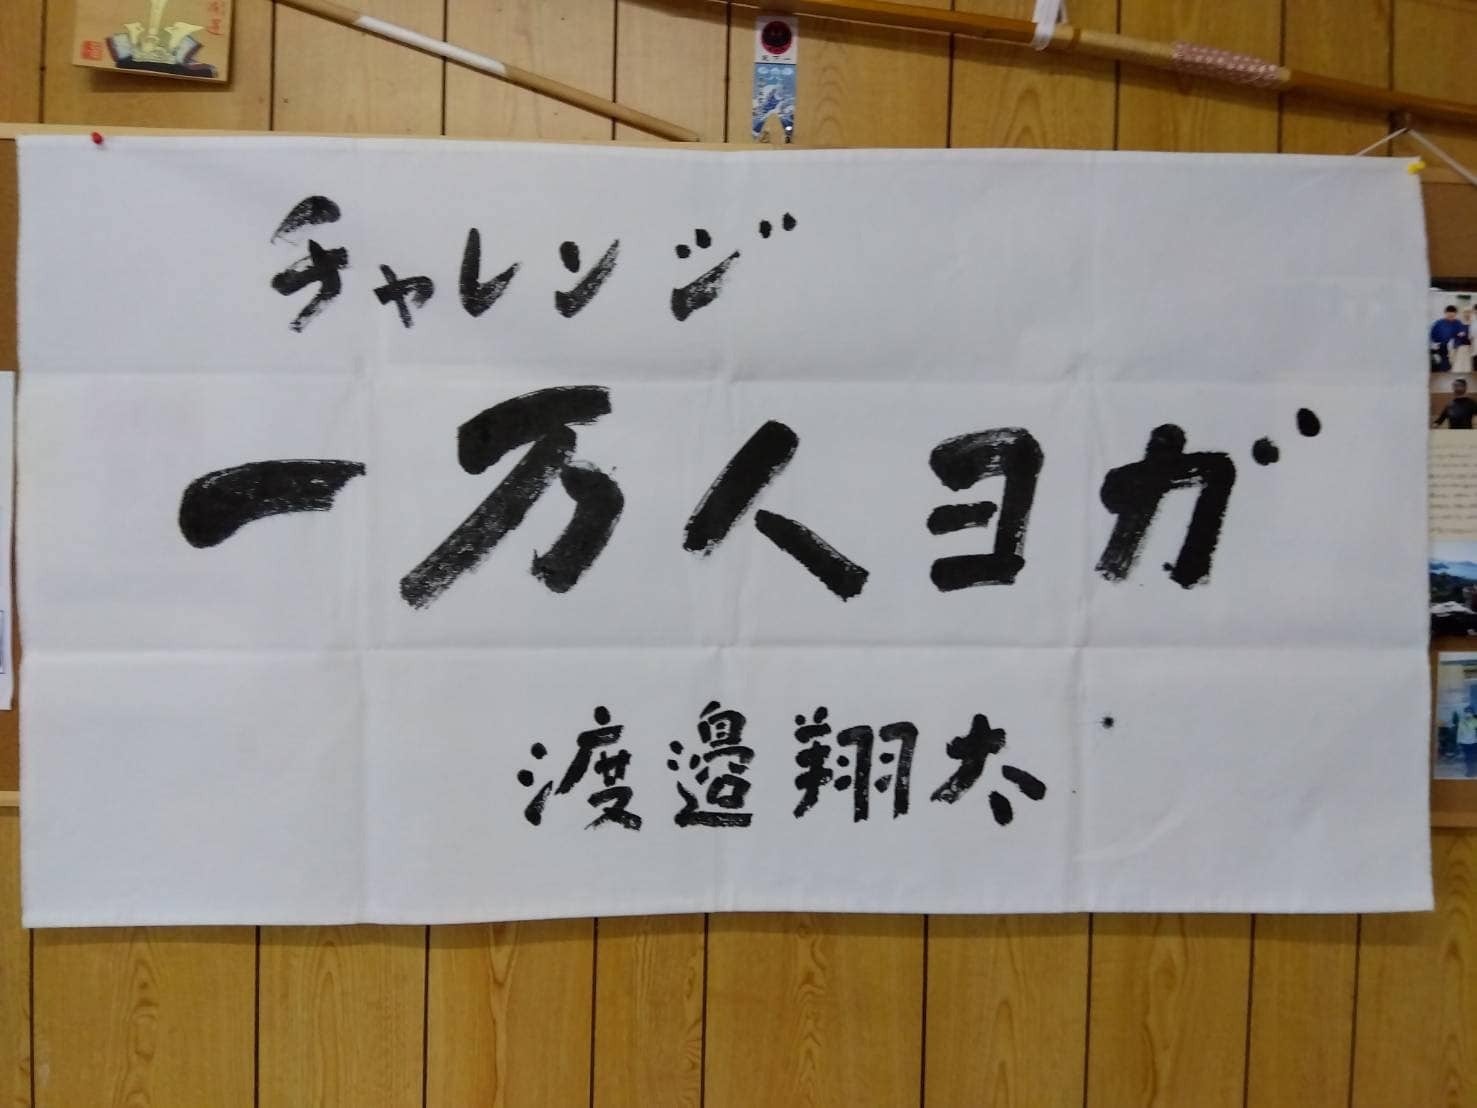 チャレンジ
一万人ヨガ
渡邉翔太